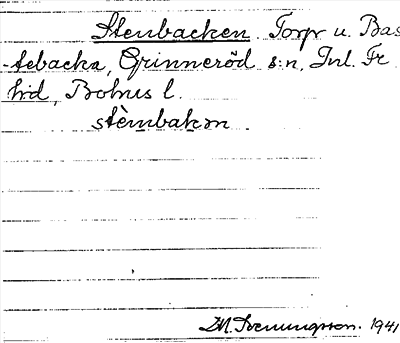 Stenbacken. Torp u. Bas
-tebacka, Grinneröd s:n, Inl. Fr
hd, Bohus l.
stèmbakɘn.
M. Svenungsson. 1941